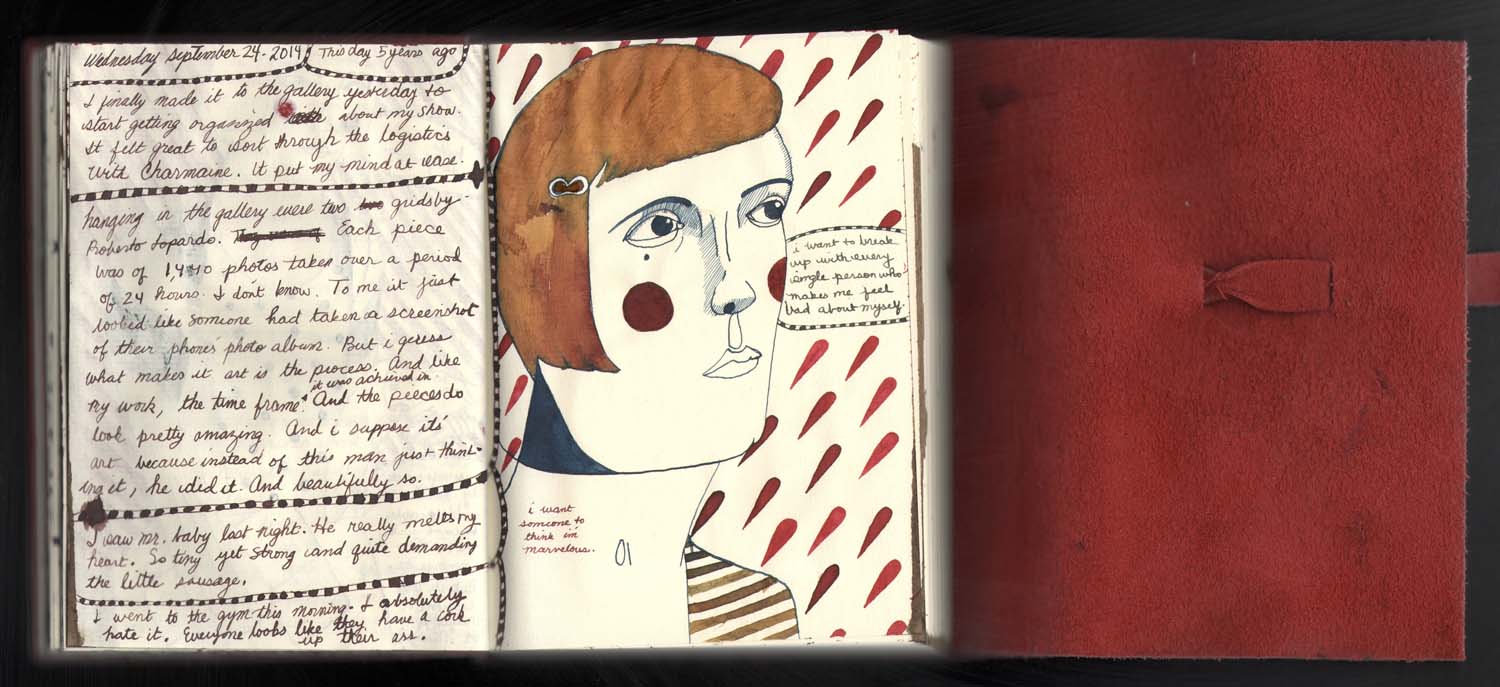 Wednesday September 24 - 2014
This day 5 years ago
I finally made it to the gallery yesterday to
start getting organized about my show.
It felt great to sort through the logistics
with Charmaine. It put my mind at ease.
hanging in the gallery were two grids by -
Roberto Lopardo. Each piece
was of 1,440 photos taken over a period
of 24 hours. I don't know. To me it just
looked like someone had taken a screenshot
of their phones' photo album. But i guess
what makes it art is the process. And like
it was achieved in
my work, the time frame. And the pieces do
look pretty amazing. And i suppose it's
art because instead of this man just think-
ing it, he did it. And beautifully so.
I saw mr. baby last night. He really melts my
heart. So tiny yet strong and quite demanding
the little sausage.
I went to the gym this morning. I absolutely
hate it. Everyone looks like they have a cork
up their ass.
i want to break
up with every
single person who
makes me feel
bad about myself.
i want
someone to
think i'm
marvelous.